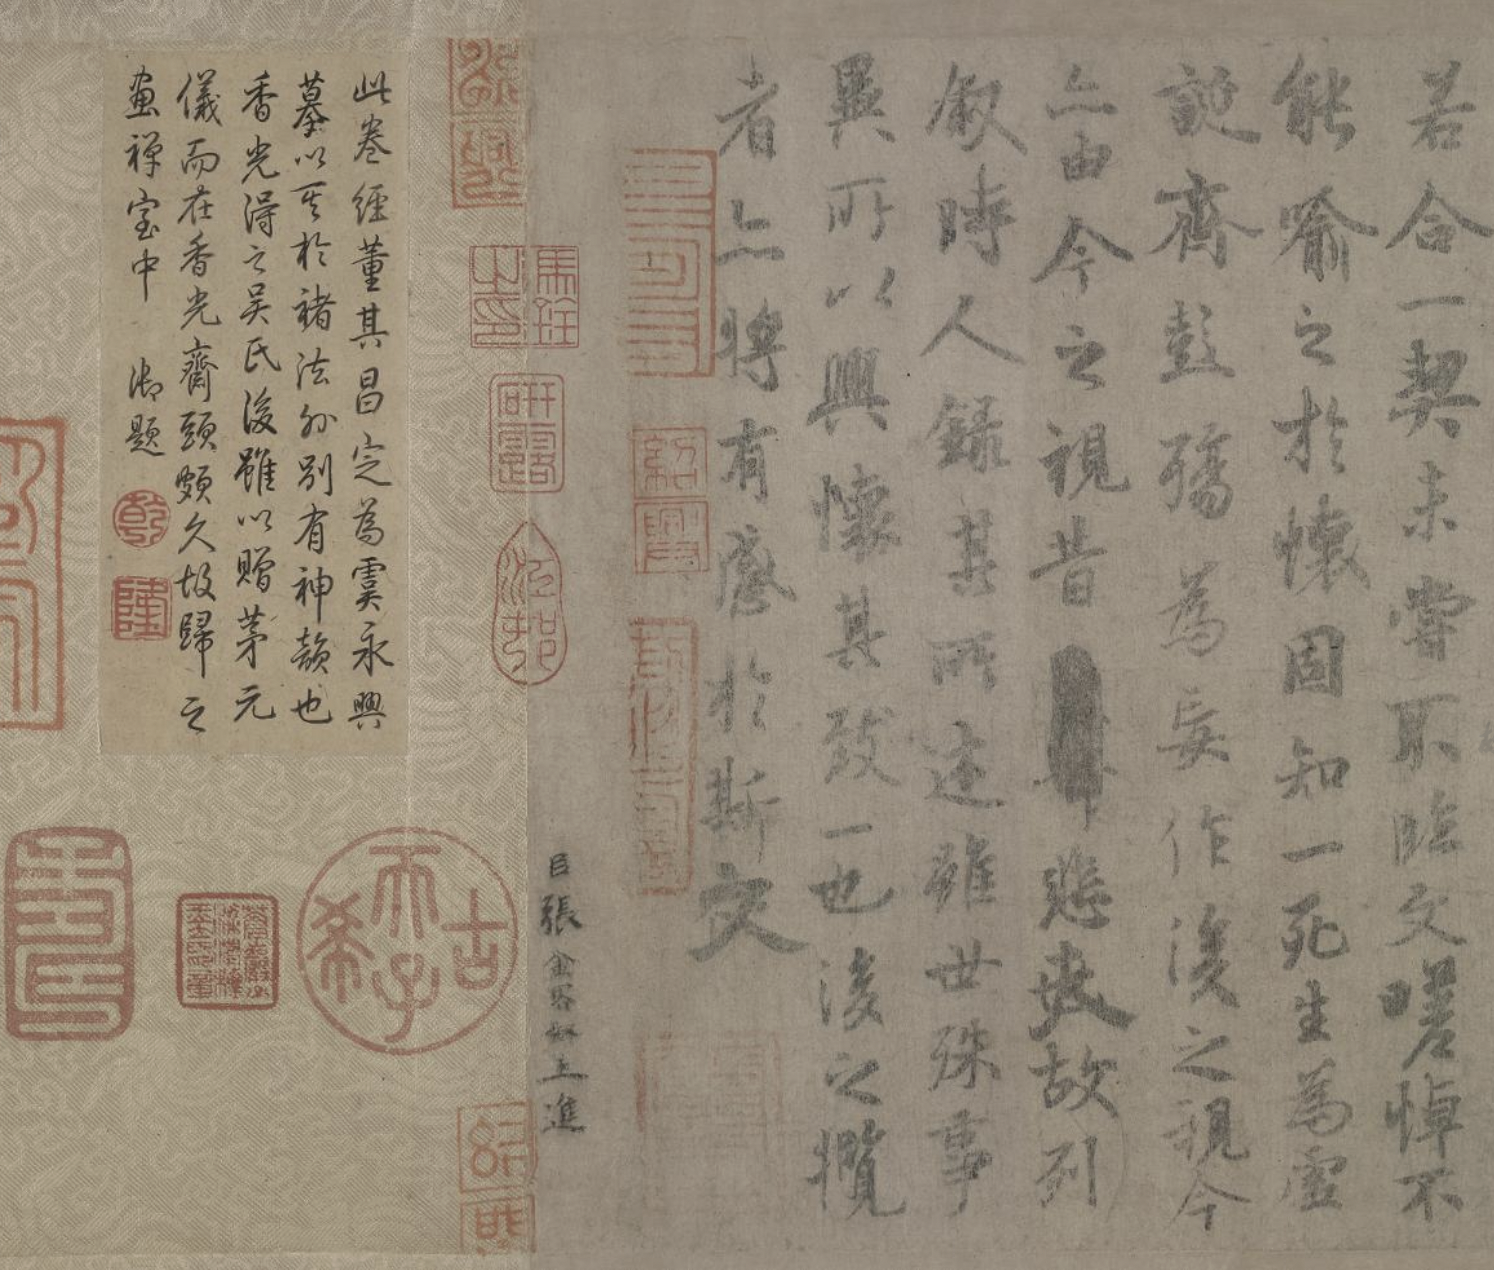 若合一契未嘗不臨文嗟悼不
能喻之於懷固知一死生為虛
誕齊彭殤為妄作後之視今
亦由今之視昔悲夫故列
敘時人錄其所述雖世殊事
異所以興懷其致一也後之攬
者亦將有感於斯文
臣張金界奴上進
此卷經董其昌定為虞永興
摹以其於褚法外別有神韻也
香光得之吳氏後雖以贈茅元
儀而在香光齋頭頗久故歸之
畫禪室中 御題
乾
隆
古
希
天
子
馬